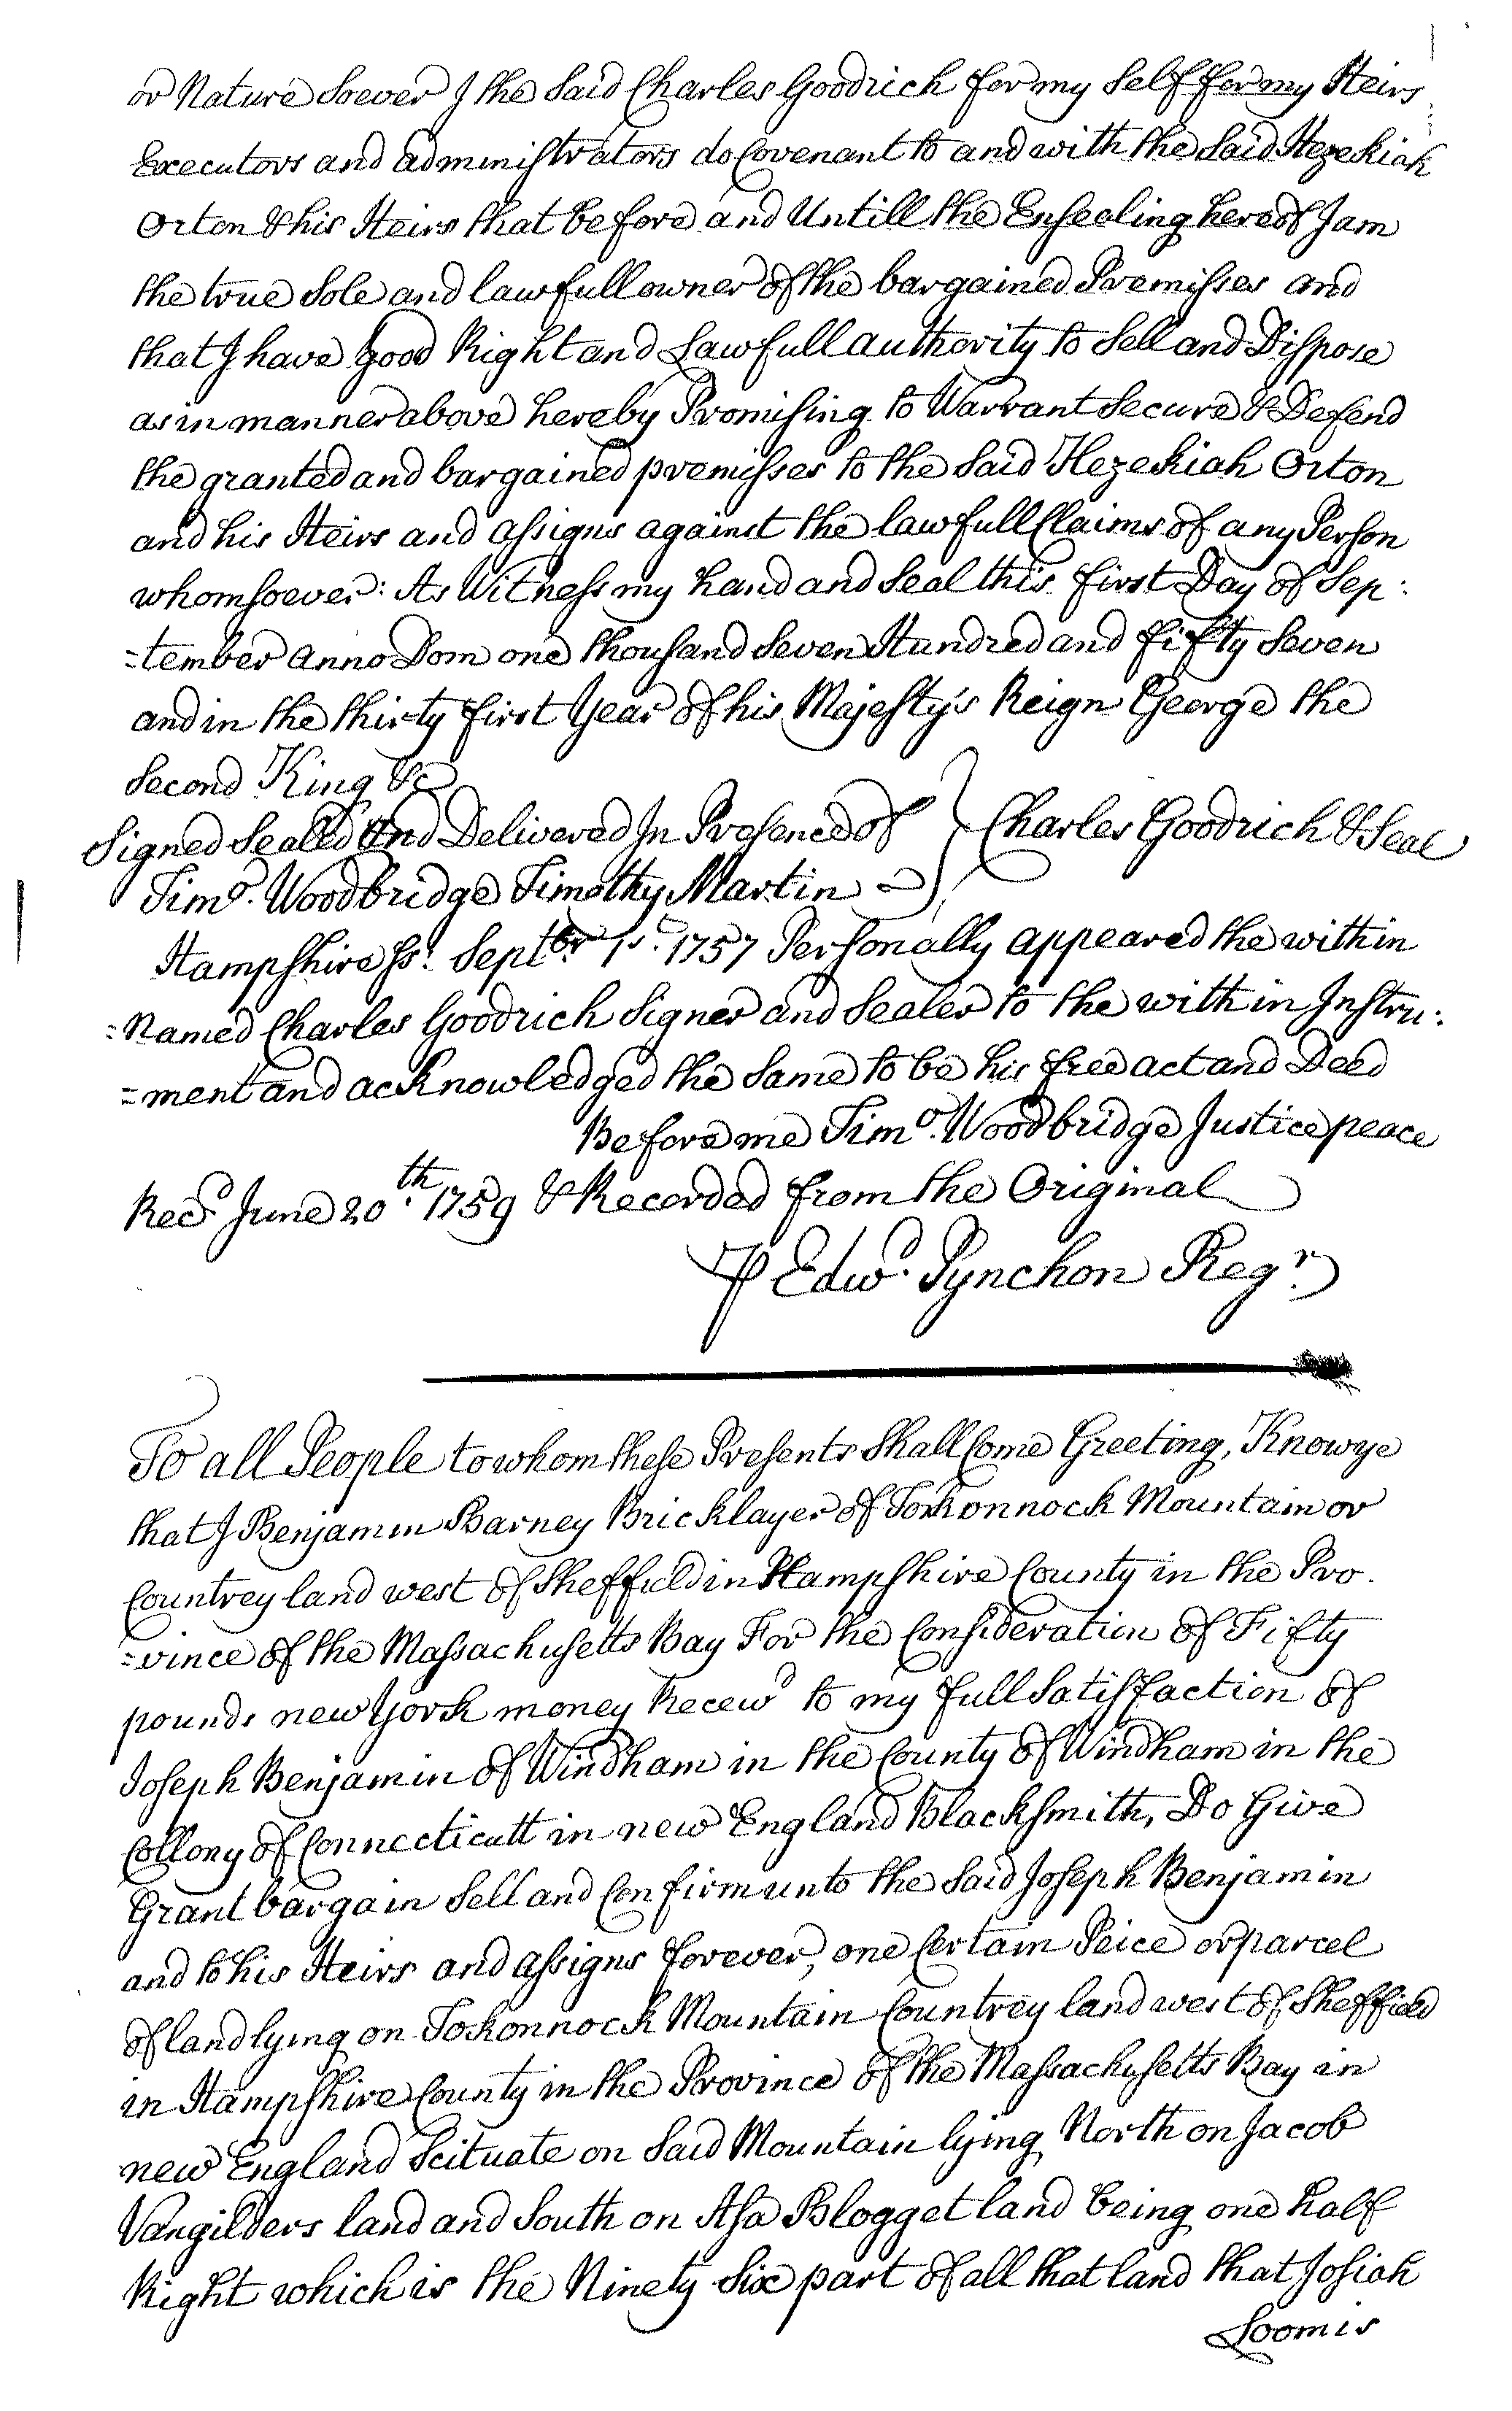 or Nature Soever I the Said Charles Goodrich for my Self for my Heirs
Executors and administrators do Covenant to and with the Said Hezekiah
Orton & his Heirs that before and Untill the Ensealing hereof I am
the true Sole and lawfull owner of the bargained Premisses and
that I have good Right and Lawfull authority to Sell and Dispose
as in manner above hereby Promising to Warrant Secure & Defend
the granted and bargained premisses to the Said Hezekiah Orton
and his Heirs and assigns against the lawfull Claims of any Person
whomsoever: As Witness my hand and Seal this first Day of Sep:
=tember anno Dom one thousand Seven Hundred and fifty Seven
and in the thirty first Year of his Majesty's Reign George the
Second King &c
Signed Sealed and Delivered In Presence of } Charles Goodrich & Seal
Timo. Woodbridge Timothy Martin
Hampshire ss. Septbr. 1st. 1757 Personally appeared the within
=Named Charles Goodrich Signer and Sealer to the within Instru:
=ment and acknowledged the Same to be his free act and Deed
Before me Timo. Woodbridge Justice peace
Recd June 20th. 1759 & Recorded from the Original
⅌ Edwd. Pynchon Regr.
To all People to whom these Presents Shall Come Greeting, Know ye
that I Benjamin Barney Bricklayer of Torkonnock Mountain or
Countrey land west of Sheffield in Hampshire County in the Pro.
=vince of the Massachusetts Bay For the Consideration of Fifty
pounds new York money Recewd to my full Satisfaction of
Joseph Benjamin of Windham in the County of Windham in the
Collony of Connecticutt in new England Blacksmith, Do Give
Grant bargain Sell and Confirm unto the Said Joseph Benjamin
and to his Heirs and assigns forever, one Certain Peice or parcel
of land lying on Tokonnock Mountain Countrey land west of Sheffield
in Hampshire County in the Province of the Massachusetts Bay in
new England Scituate on Said Mountain lying North on Jacob
Vangilders land and South on Asa Blogget land being one half
Right which is the Ninety Six part of all that land that Josiah
Loomis